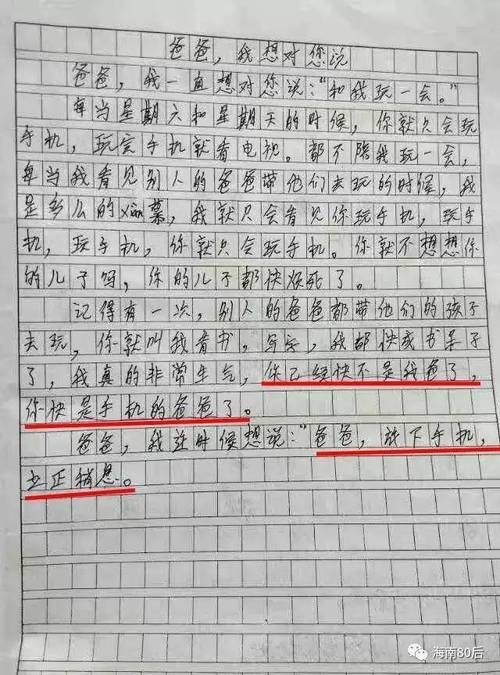 爸爸，我想对您说
爸爸，我一直想对您说："和我玩一会。"
每当星期六和星期天的时候，你就只会玩
手机，玩完手机就看电视。都不陪我玩一会，
每当我看见别人的爸爸带他们去玩的时候，我
是多么的xiàn慕，我就只会看见你玩手机，玩手
机，玩手机，你就只会玩手机。你就不想想你
的儿子吗，你的儿子都快烦死了。
记得有一次，别人的爸爸都带他们的孩子
去玩，你就叫我看书，写字，我都快成书呆子
了，我真的非常生气，你已经快不是我爸了，
你快是手机的爸爸了。
爸爸，我这时候想说："爸爸，放下手机，
立正稍息。
海南80后